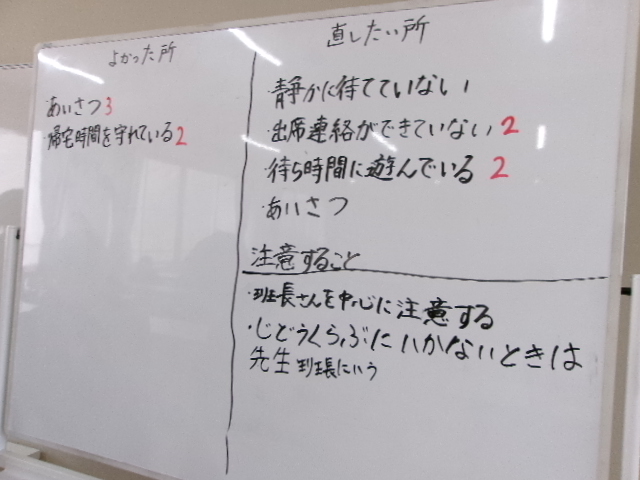 よかった所
・あいさつ3
・帰宅時間を守れている2
直したい所
・静かに待てていない
・出席連絡ができていない2
・待ち時間に遊んでいる2
・あいさつ
注意すること
・班長さんを中心に注意する
・じどうくらぶにいかないときは
先生班長にいう